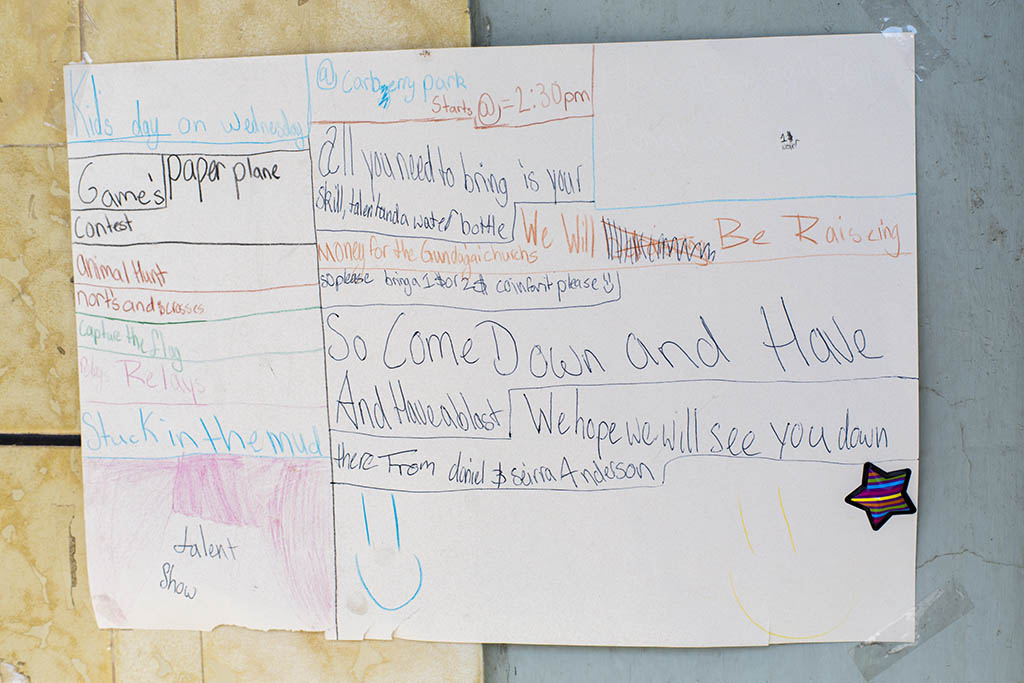 Kid's day on Wednesday
Game's
paper plane
Contest
animal Hunt
nort's and crosses
Capture the flag
Relays
Stuck in the mud
talent
Show
@ Carberry park
Starts @ = 2:30pm
all you need to bring is your
skill, talent and a water bottle
We Will Be Raising
Money for the Gundagai churchs
so please bring a 1$ or 2$ coin for it please
So Come Down and Have
And Have a blast
We hope we will see you down
there From daniel & seirra Anderson
1$